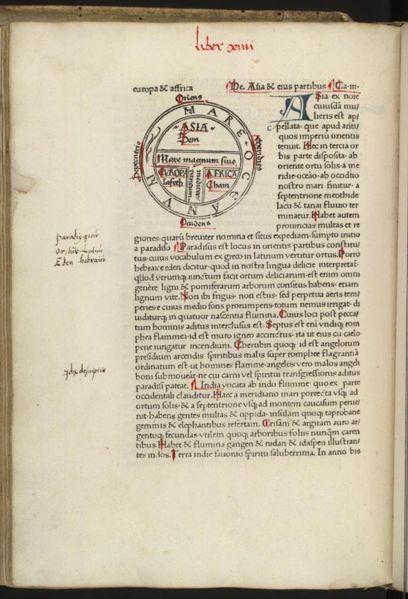 liber xiiii
europa & affrica De. Asia & eius partibus Ca.iii.
Oriens
MARE OCEANVM
ASIA
Sem
Mare magnum siue
EVROPA
Iafeth
AFRICA
Cham
Septentrio
Meridies
Occidens
Asia ex noie
cuiusdã mu
lieris est ap
pellata. que apud ãtiq
quos imperiũ orientis
tenuit. Hec in tercia or
bis parte disposita. ab
oriente ortu solis. a me
ridie. oceão. ab occiduo
nostro mari finitur. a
septentrione meothide
lacu & tanai fluuio ter
minatur. Habet autem
prouincias multas et re
giones. quarũ breuiter nomina et situs expediam. sumpto initio
a paradiso Paradisus est locus in orientis partibus constitu
tus. cuius vocabulum ex greco in latinum verritur ortus. Porro
hebraice eden dicitur. quod in nostra lingua delicie interpretat
quod vtrumque iunctum facit ortum deliciarum. est enim omni
genere ligni & pomiferarum arborum consitus. habens etiam
lignum vite. Non ibi frigus. non estus. sed perpetua aeris tem
peries. e cuius medio fons prorumpens. totum nemus irrigat. di
uiditurq in quatuor nascentia flumina. Cuius loci post pecca
tum hominis aditus interclusus est. Septus est eni vndiq rom
phea flammea. id est muro igneo accinctus. ita ut eius cũ celo
pene iungatur incendium. Cherubin quoq id est angelorum
presidium arcendis spiritibus malis super romphee flagrantiã
ordinatum est. ut homines flamme. angelos vero malos angeli
boni submoueãt. ne cui carni vel spiritui transgressionis aditus
paradisi pateat. India vocata ab indo flumine quo ex parte
occidentali clauditur. Hæc a meridiano mari porrecta vsq ad
ortum solis. & a septentrione vsq ad montem caucasum perue
nit. habens gentes multas & oppida. insulam quoq taprobane
gemmis & elephantibus refertam. Crisam & argiram auro ar
gentoq fecundas. vtilem quoq arboribus foliis nunqm caren
tibus. Habet & flumina gangen & nidan & idaspen illustran
tes indos. Terra indie fauonio spiritu saluberrima. In anno bis
paradis. quasi
Eden hebraice